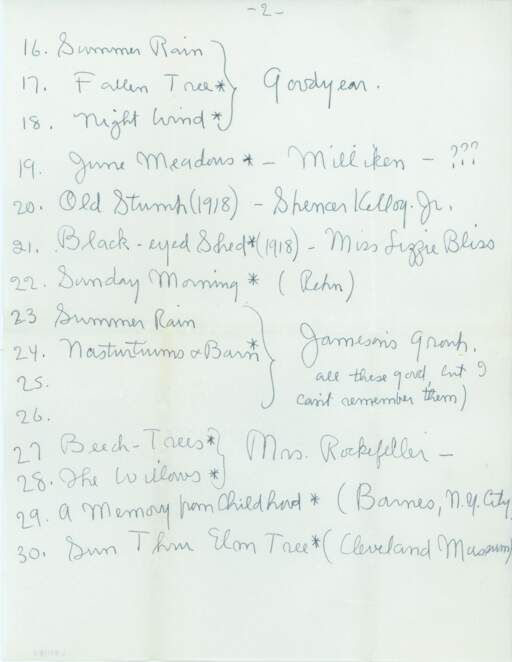 -2-
16. Summer Rain
17. Fallen Tree* } Goodyear.
18. Night Wind*
19. June Meadows * - Milliken - ???
20. Old Stump (1918) - Spencer Kellog. Jr.
21. Black-eyed Shed* (1918) - Miss Lizzie Bliss
22. Sunday Morning * ( Rehn )
23 Summer Rain
24. Nasturtiums & Barn* } Jameson's Group.
25. all these good, but I
26. can't remember them)
27 Beech-Trees* } Mrs. Rockefeller -
28. The Willows *
29. A Memory from Childhood * ( Barnes, N.Y. City
30. Sun Thru Elm Tree* ( Cleveland Museum)